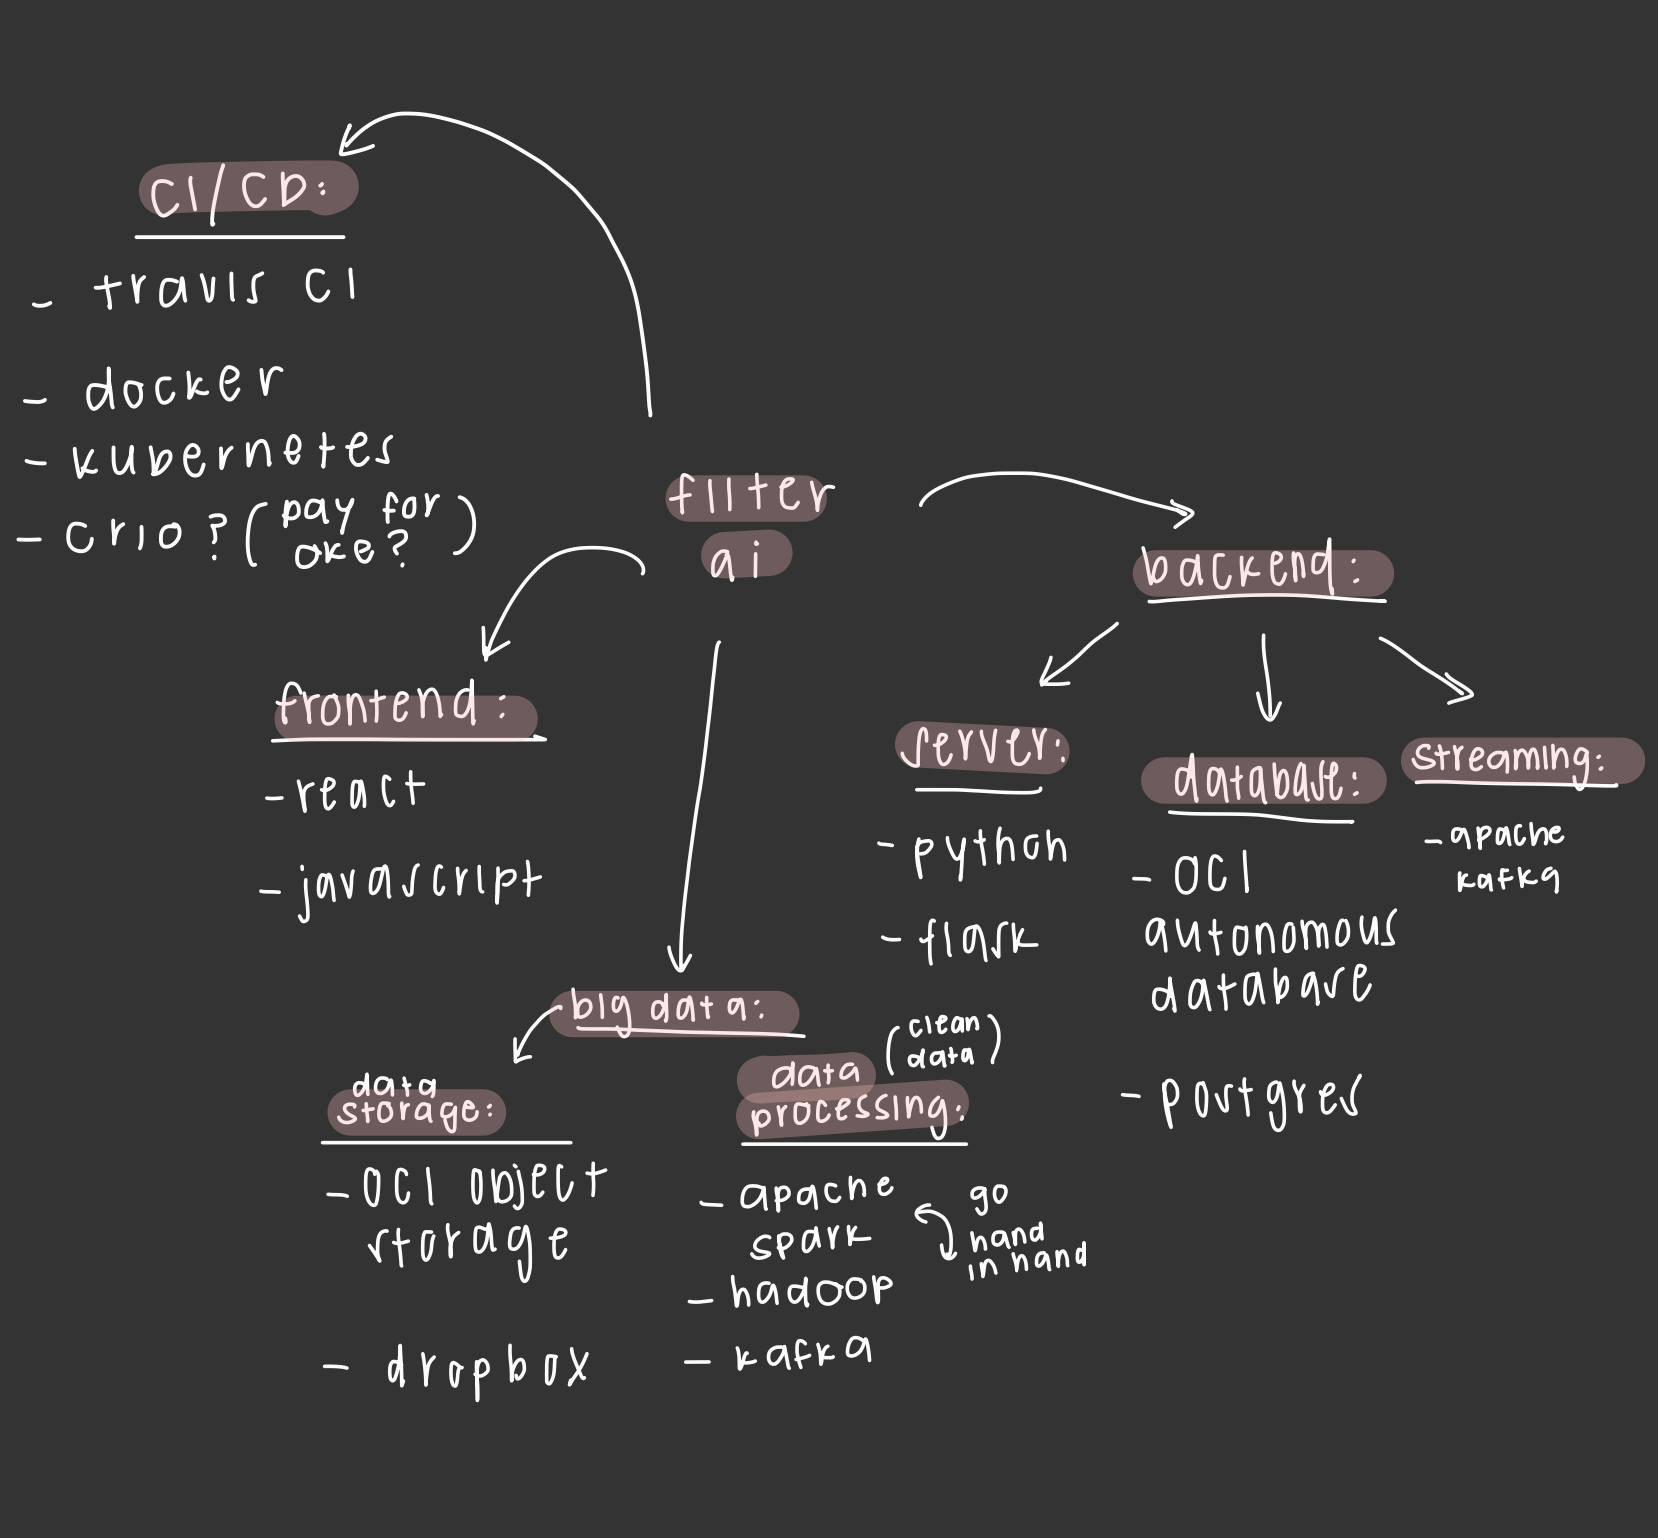 CI/CD:
- travis CI
- docker
- kubernetes
- crio? (pay for
oke?)
filter
ai
frontend:
- react
- javascript
backend:
server:
- python
- flask
database:
- OCI
autonomous
database
- postgres
streaming:
- apache
kafka
big data:
data
storage:
- OCI object
storage
- dropbox
data
processing:
(clean
data)
- apache
spark
- hadoop
- kafka
go
hand
in hand